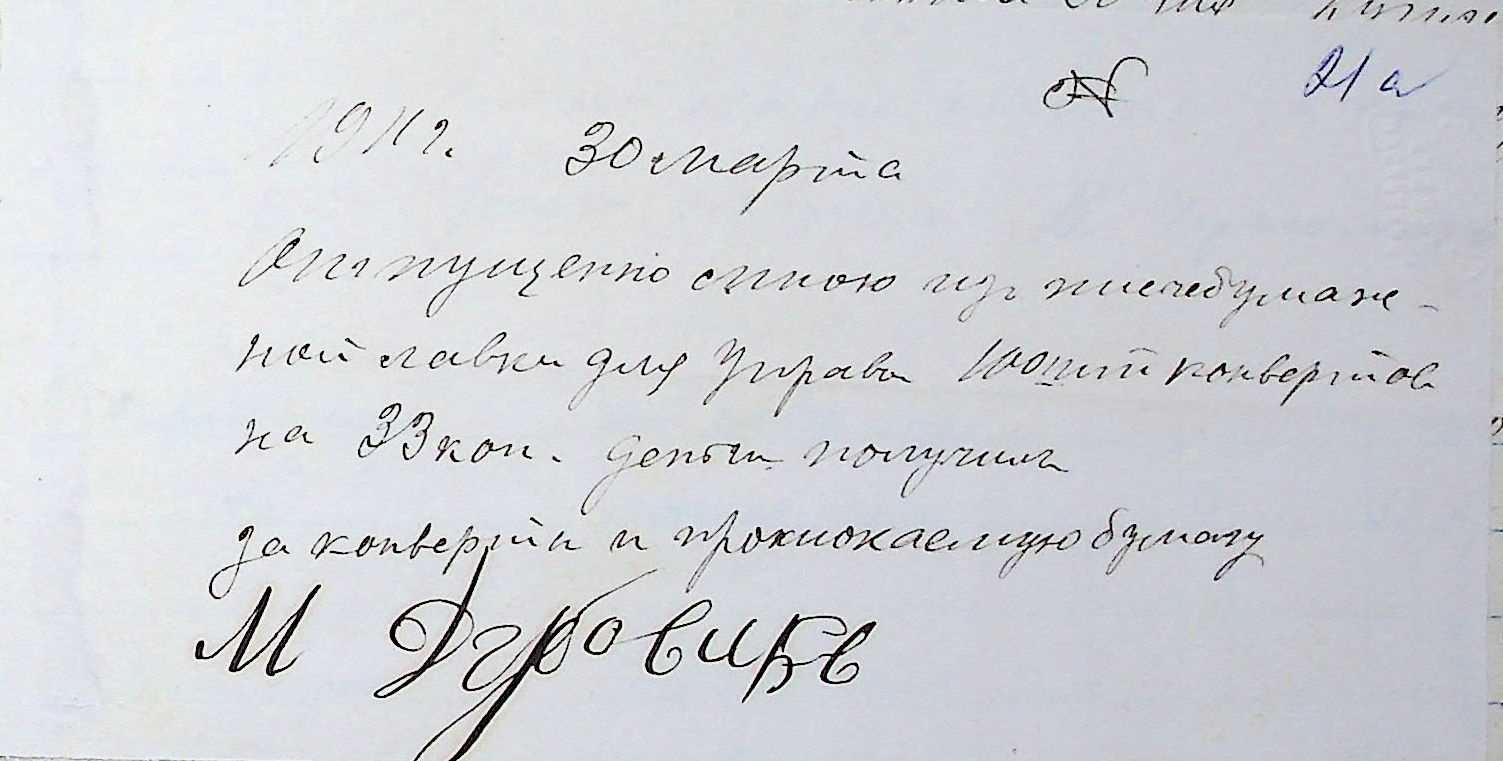 № 21 а
1911 г. 30 марта
Отпущенно мною из писчебумаж-
ной лавки для Управы 100 шт конвертов
на 33 коп. деньги получил
за конверты и прокиокаемую бумагу
М